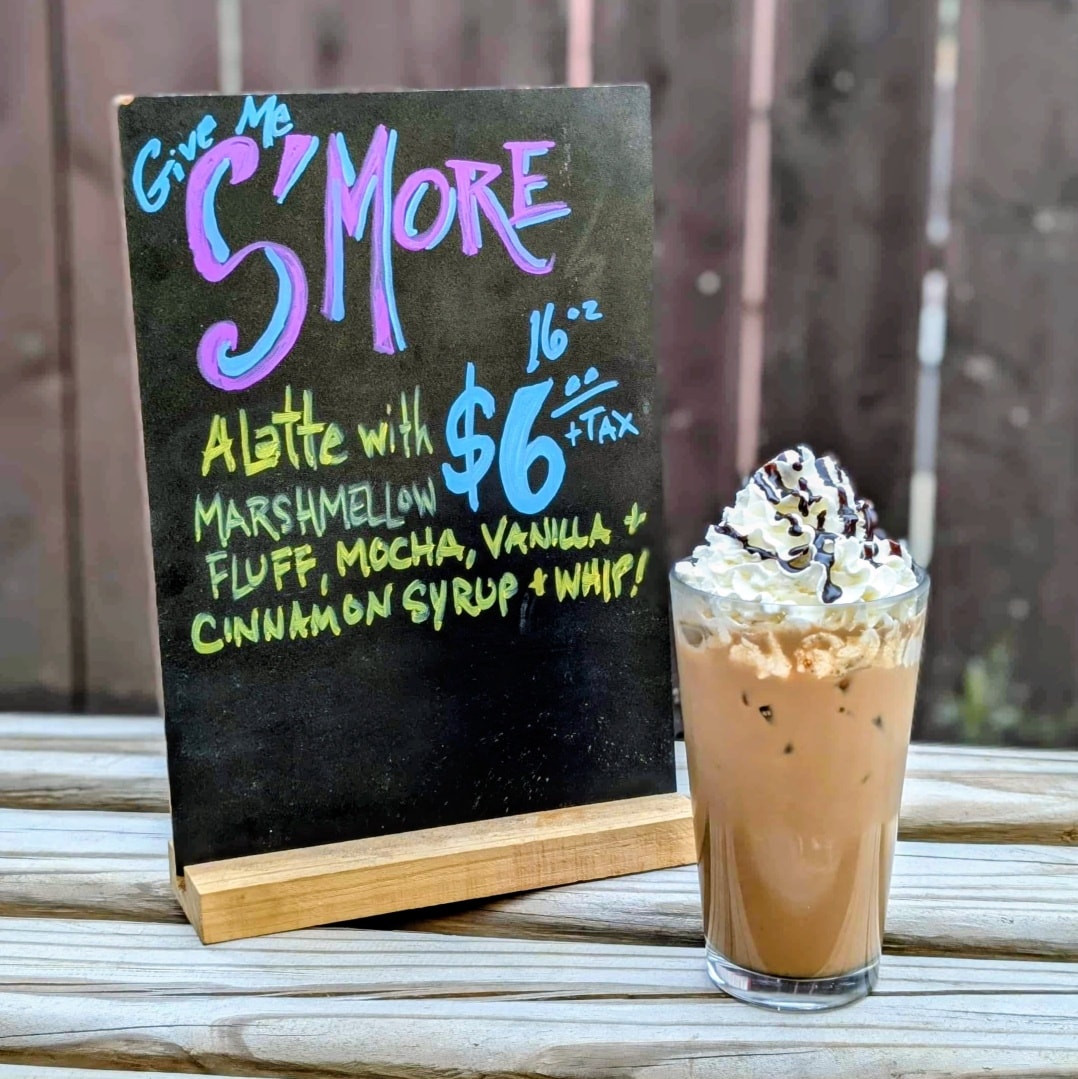 Give Me
S'MORE
16oz
$6.00 +TAX
A Latte with
MARSHMELLOW
FLUFF, MOCHA, VANILLA +
CINNAMON SYRUP + WHIP!